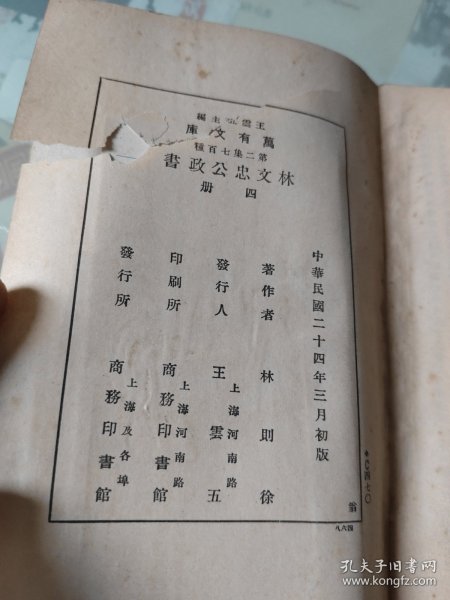 編主五雲王
庫文有萬
種百七集二第
書政公忠文林
册四
中華民國二十四年三月初版
著作者 林則徐
發行人 王雲五
上海河南路
印刷所 商務印書館
上海河南路
發行所 商務印書館
上海及各埠
＊C四七〇
翁
八六四
孔夫子旧书网
www.kongfz.com